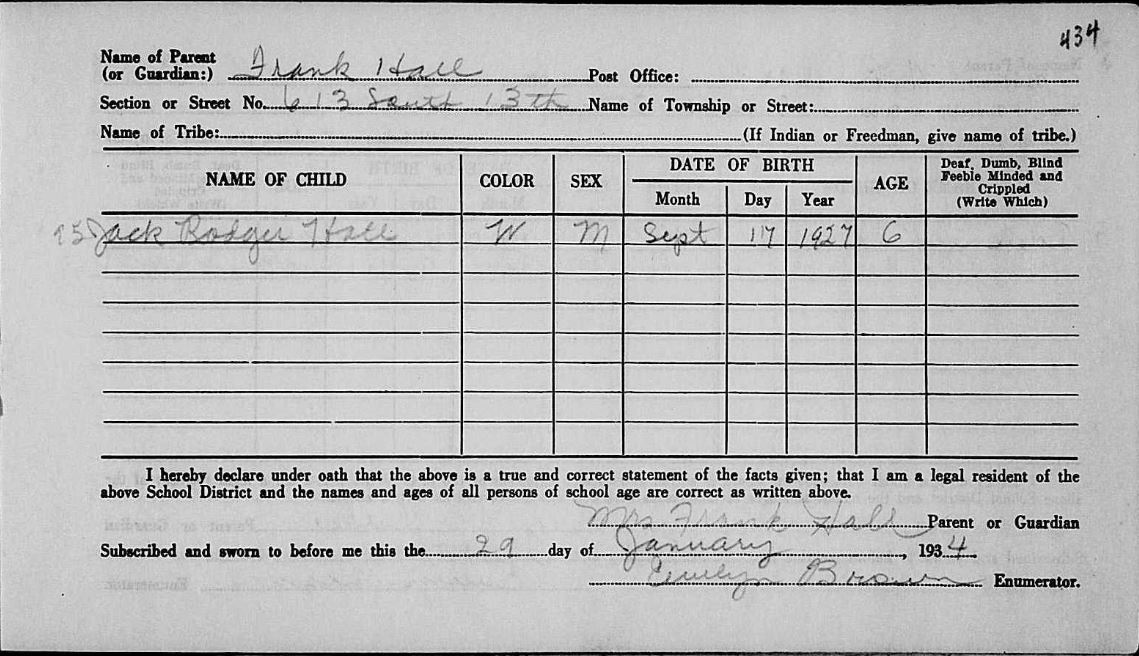 434
Name of Parent
(or Guardian:) Frank Hall Post Office:
Section or Street No. 613 South 13th Name of Township or Street:
Name of Tribe: (If Indian or Freedman, give name of tribe.)
NAME OF CHILD COLOR SEX DATE OF BIRTH AGE Deaf, Dumb, Blind
Feeble Minded and
Crippled
(Write Which)
Month Day Year
95 Jack Rodger Hall W M Sept 17 1927 6
I hereby declare under oath that the above is a true and correct statement of the facts given; that I am a legal resident of the
above School District and the names and ages of all persons of school age are correct as written above.
Mrs Frank Hall Parent or Guardian
Subscribed and sworn to before me this the 29 day of January, 1934
Evelyn Brown Enumerator.